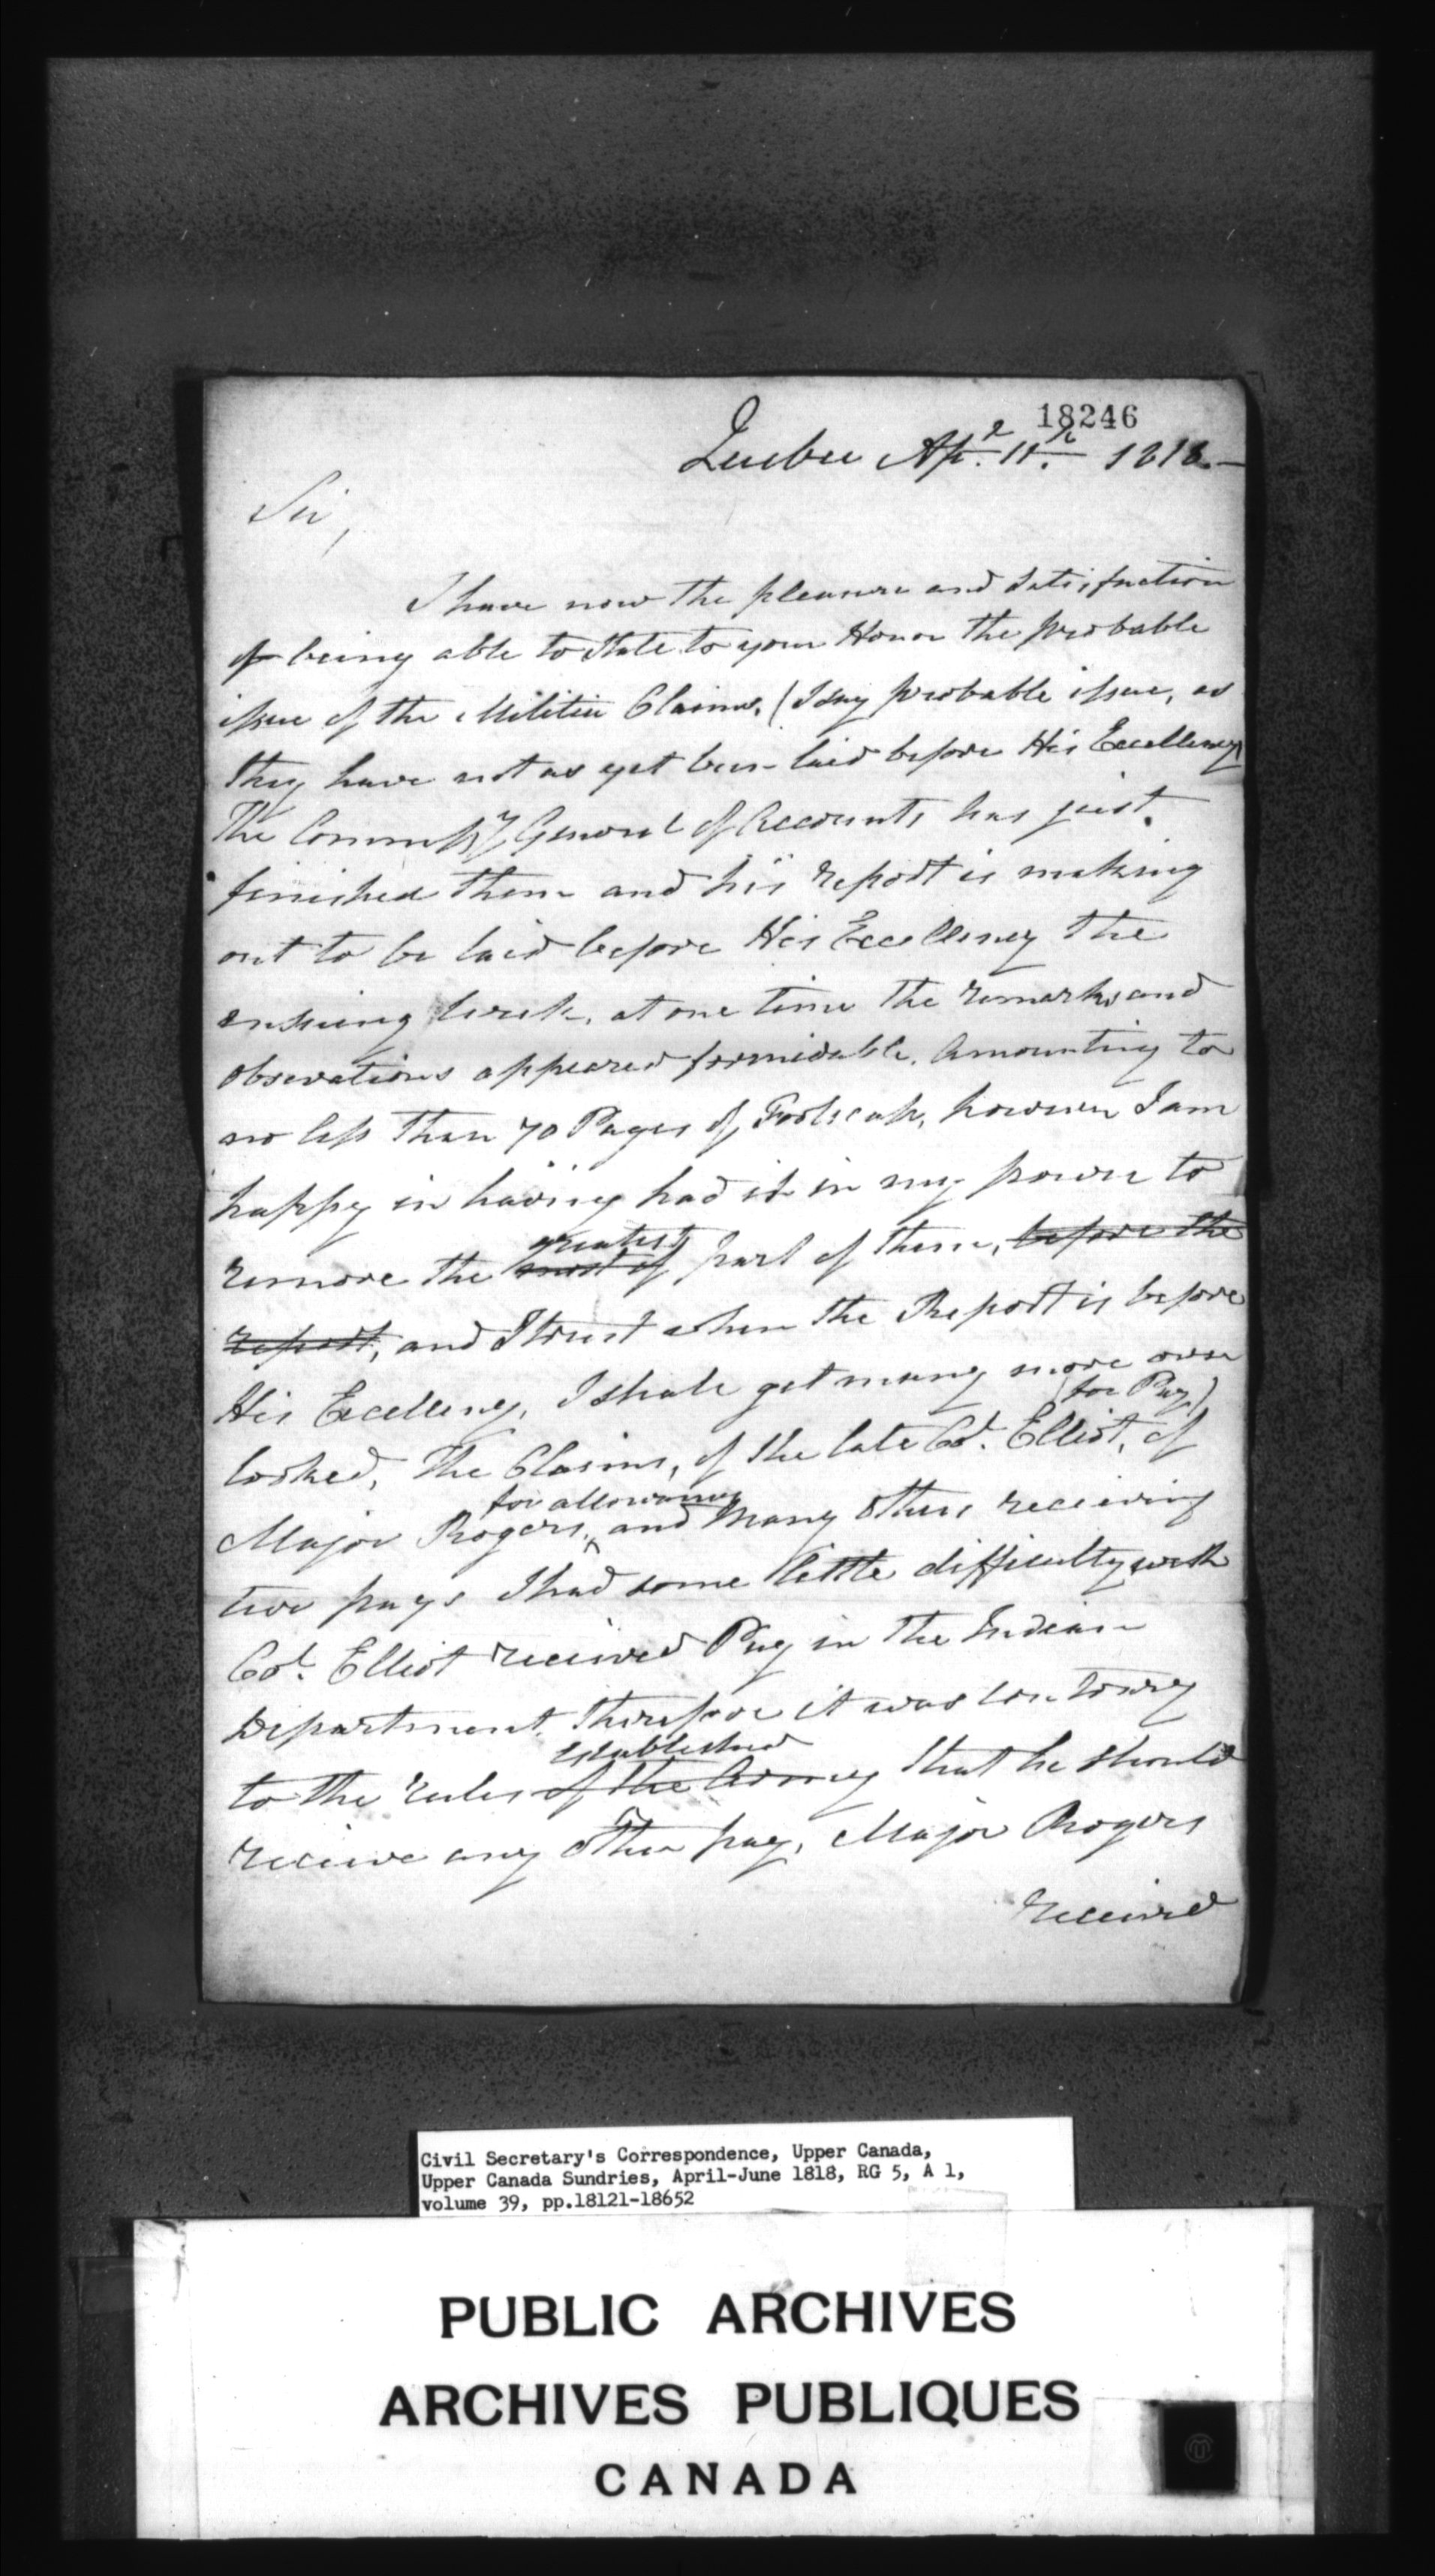 18246
Quebec Apl. 11th. 1818.—
Sir,
I have now the pleasure and Satisfaction
of being able to State to your Honor the probable
issue of the Militia Claims, (I say probable issue, as
they have not as yet been laid before His Excellency)
The Commissy General of Accounts has just
finished them and his report is making
out to be laid before His Excellency the
ensuing week, at one time the remarks and
observations appeared formidable, Amounting to
no less than 70 Pages of Foolscap, however I am
happy in having had it in my power to
greatest
remove the most of part of them, before the
report, and I trust when the Report is before
His Excelleny, I shall get many more over
(for Pay)
looked, The Claims, of the late Col. Elliot, of
for allowances
Major Rogers, and Many others receiving
two pays I had some little difficulty with
Col. Elliot received Pay in the Indian
Department, therefore it was contrary
established
to the rules of the Army that he should
receive any other pay, Major Rogers
received
Civil Secretary's Correspondence, Upper Canada,
Upper Canada Sundries, April-June 1818, RG 5, A 1,
volume 39, pp.18121-18652
PUBLIC ARCHIVES
ARCHIVES PUBLIQUES
CANADA